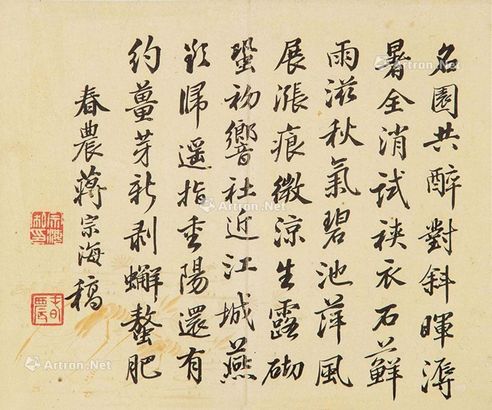 名園共醉對斜暉溽
暑全消試裌衣石蘚
雨滋秋氣碧池萍風
展漲痕微涼生露砌
蛩初響社近江城燕
欲歸遥指重陽還有
約薑芽新剥蠏螯肥
春農蔣宗海稿
Artron.Net
Artron.Net
Artron.Net
Artron.Net
Artron.Net